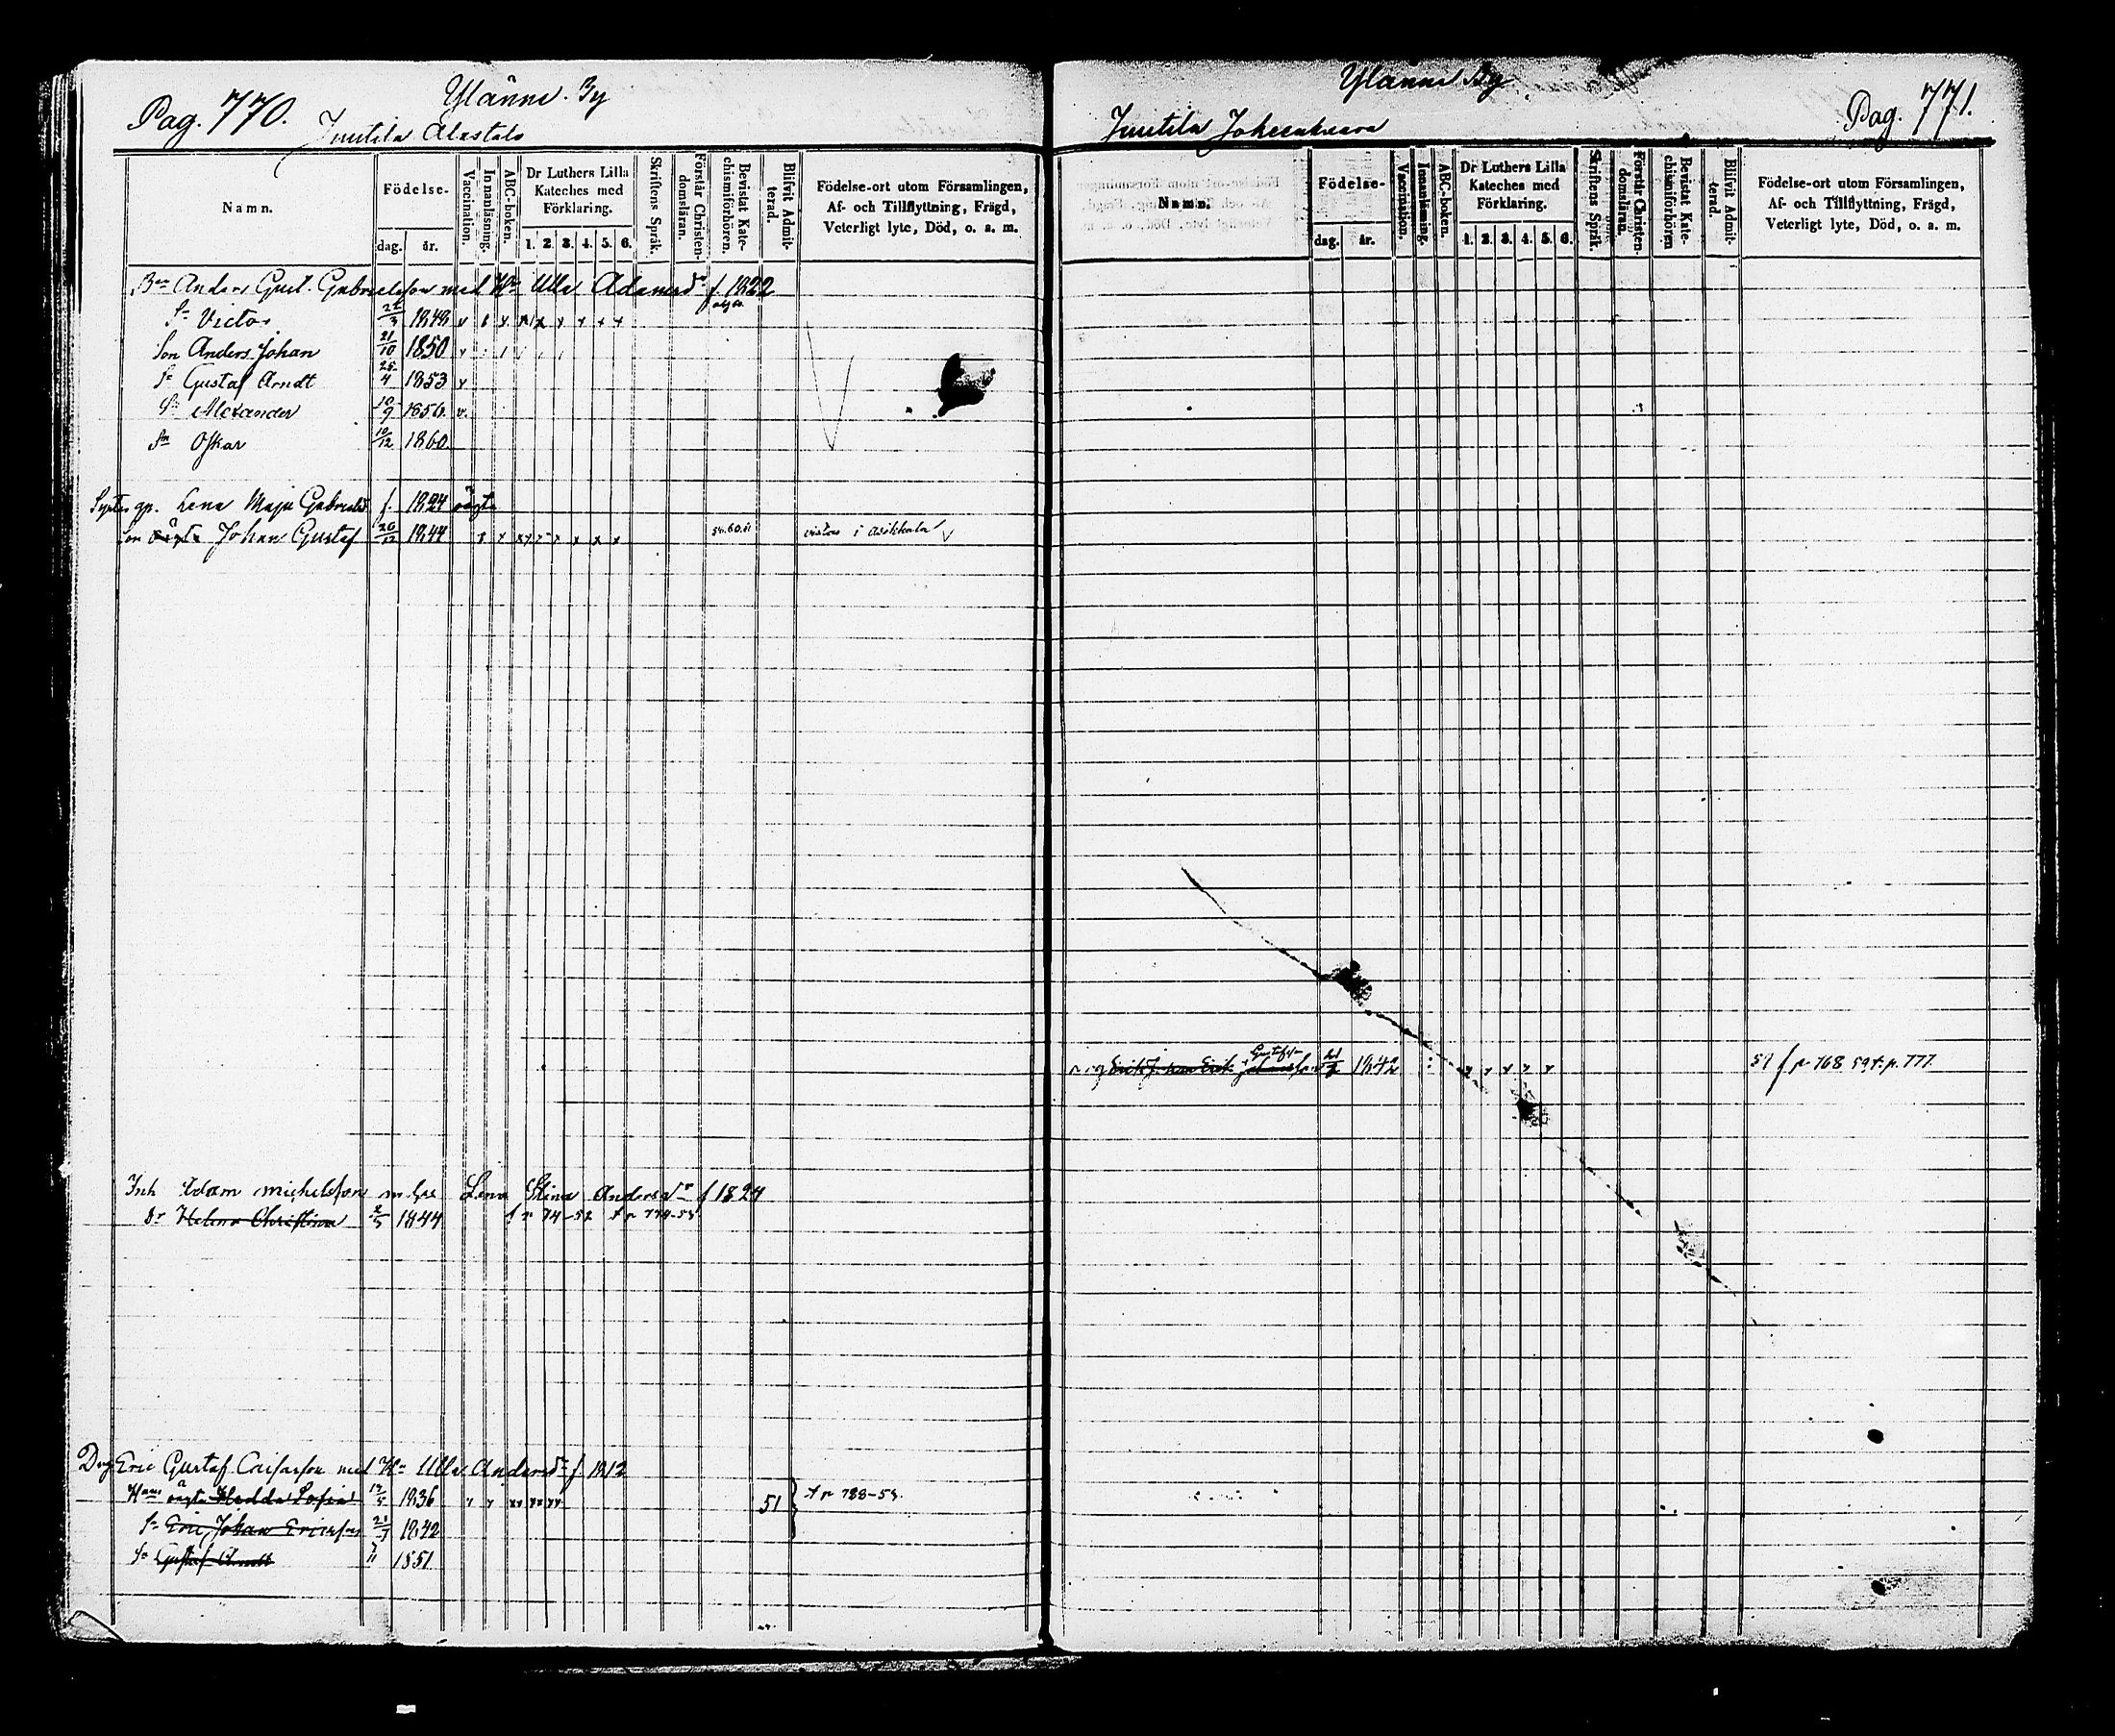 Pag. 770.
Ylänne By
Juutila Alastalo
Namn.
Födelse-
dag. år.
Vaccination.
Innanläsning.
ABC-boken.
Dr Luthers Lilla Kateches med Förklaring.
1. 2. 3. 4. 5. 6.
Skriftens Språk.
Förstår Christen-domsläran.
Bevistat Kate-chismiförhören.
Blifvit Admit-terad.
Födelse-ort utom Församlingen,
Af- och Tillflyttning, Frägd,
Veterligt lyte, Död, o. a. m.
Anders Gust. Gabrielsson med Hu Ulla Adamsdr f. 1822
Sn Victor 1848
Son Anders Johan 21/10 1850
Sn Gustaf Arndt 25/4 1853
Sn Alexander 10/9 1856
Sn Oskar 10/12 1860
gp. Lena Maja Gabrielsd f. 1824
son Johan Gustaf 20/12 1844 54.60.61 vistas i Asikkala
Inh Adam Michelsson m Lena Stina Andersdr f 1824
dr Helena Christina 2/5 1844 f p 74-52 t p 774-53
Drg Eric Gustaf med Hu Ulla Andersdr f 1812
Hans Hedda Sofia 1836 51 t p 788-53.
Sn Eric Johan Ericsson 21/7 1842
Sn Gustaf Arndt 7/11 1851
Ylänne By
Pag. 771.
Juutila
Namn.
Födelse-
dag. år.
Vaccination.
Innanläsning.
ABC-boken.
Dr Luthers Lilla Kateches med Förklaring.
1. 2. 3. 4. 5. 6.
Skriftens Språk.
Förstår Christen-domsläran.
Bevistat Kate-chismiförhören
Blifvit Admit-terad.
Födelse-ort utom Församlingen,
Af- och Tillflyttning, Frägd,
Veterligt lyte, Död, o. a. m.
Gustafs-
Erik Johan 1842 57 f p 768 59 t. p. 777